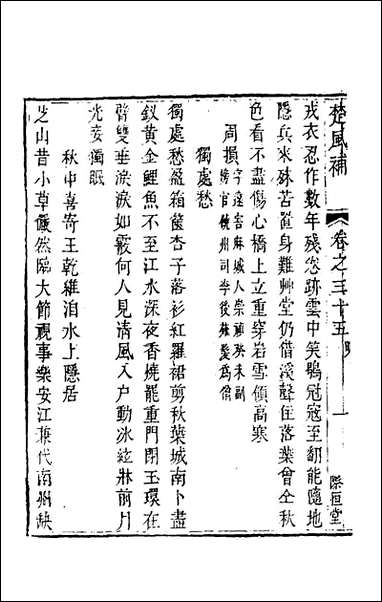 楚風補 卷之三十五 明 一 際恒堂
戎衣忍作數年殘忽跡雲中笑鶡冠寇至都能隨地
隱兵來殊苦置身難艸堂仍借淺聲住落葉曾仝秋
色看不盡傷心橋上立重穿岩雪傾高寒
周損
字遠害麻城人崇禎癸未副
榜官饒州司李後薙髪為僧
獨處愁
獨處愁盈箱篋杏子落衫紅羅裙剪秋葉城南卜盡
釵黃金鯉魚不至江水深夜香燒罷重門閉玉環在
臂雙垂淚淚如霰何人見清風入户動冰絃牀前月
光妾獨眠
秋中喜寄王乾維洎水上隱居
芝山昔小草儼然臨大節視事樂安江兼代南州缺